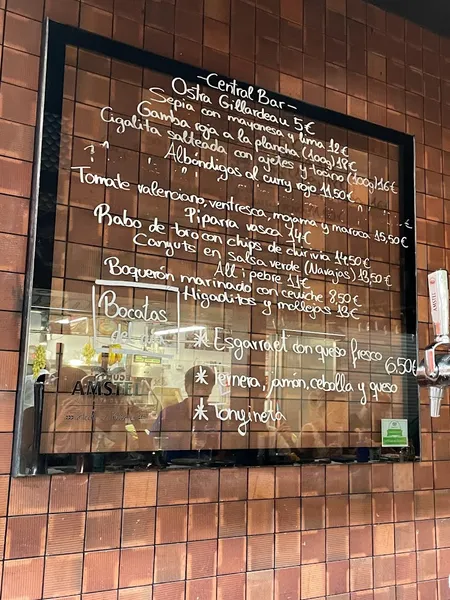 -Central Bar-
Ostra Gillardeau 5€
Sepia con mayonesa y lima 12€
Gamba roja a la plancha (100g) 18€
Cigalita salteada con ajetes y tocino (100g) 16€
Albóndigas al curry rojo 11,50€
Tomate valenciano, ventresca, mojama y maroca 15,50€
Piparra vasca 14€
Rabo de toro con chips de chirivía 14,50€
Canyuts en salsa verde (Navajas) 13,50€
All i pebre 11€
Boquerón marinado con ceviche 8,50€
Higaditos y mollejas 13€
Bocatas
* Esgarraet con queso fresco
6,50€
* Ternera, jamón, cebolla y queso
* Tonyineta
AMSTEL